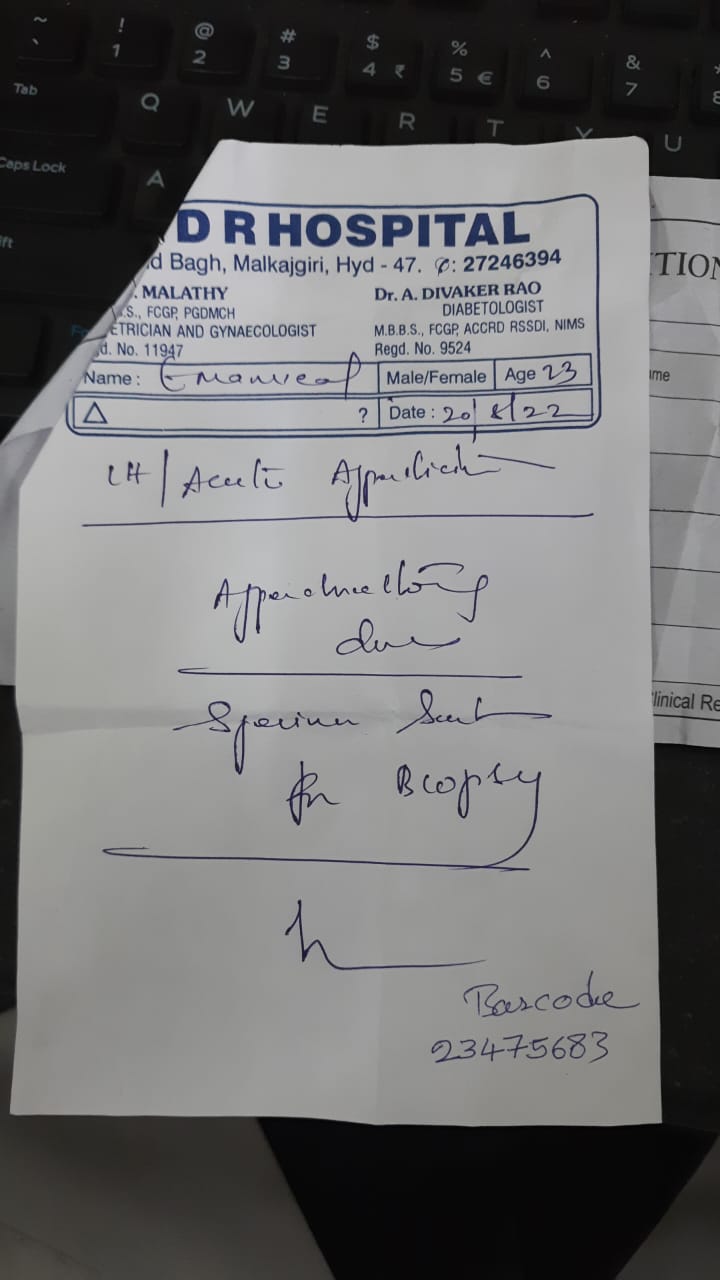 D R HOSPITAL
d Bagh, Malkajgiri, Hyd - 47. ✆: 27246394
. MALATHY
.S., FCGP, PGDMCH
ETRICIAN AND GYNAECOLOGIST
d. No. 11947
Dr. A. DIVAKER RAO
DIABETOLOGIST
M.B.B.S., FCGP, ACCRD RSSDI, NIMS
Regd. No. 9524
Name : Emanueal Male/Female Age 23
△ ? Date : 20/8/22
Acute Appendicitis
Appendicectomy
done
Specimen Sent
for Biopsy
Barcode
23475683
TION
me
linical Re
~ ` ! 1 @ 2 # 3 $ 4 ₹ % 5 € ^ 6 & 7
Tab Q W E R T Y U
Caps Lock A
ft